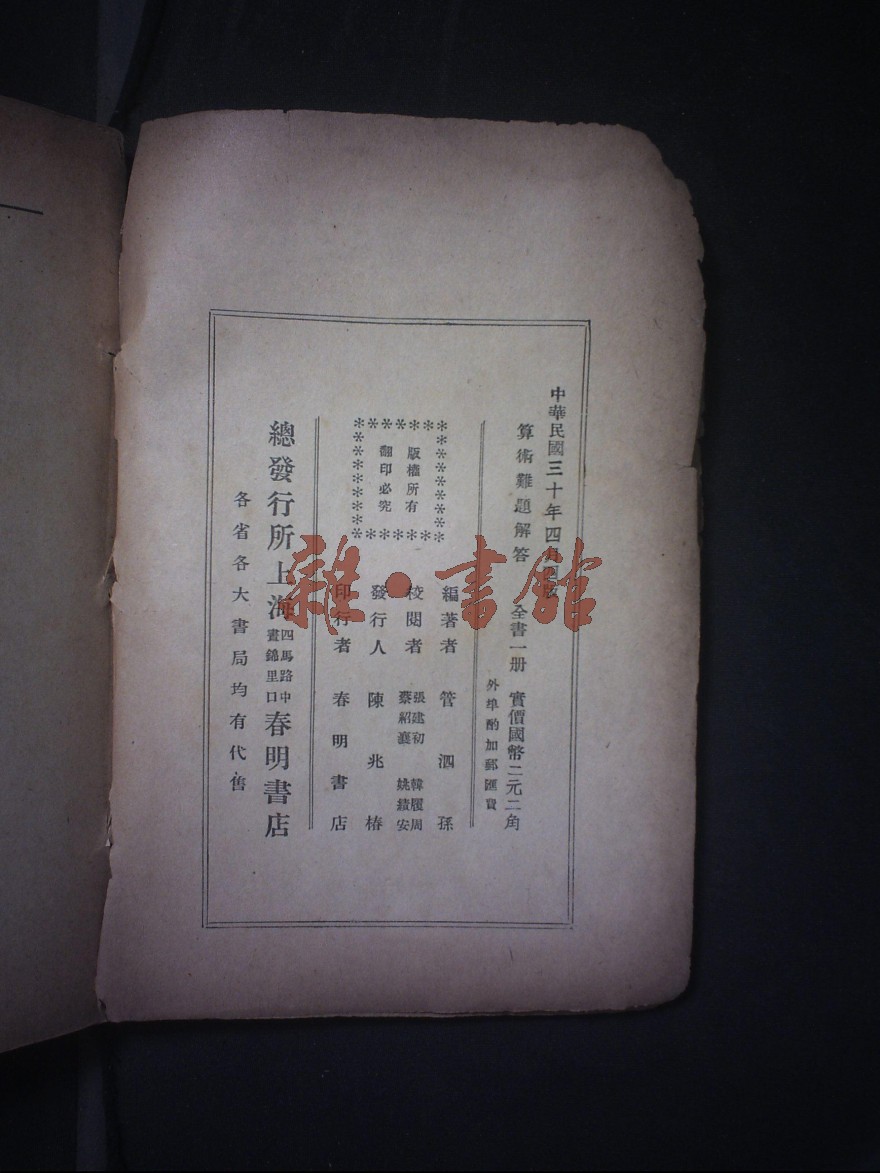 中華民國三十年四月四版
算術難題解答 全書一册 實價國幣二元二角
外埠酌加郵匯費
版權所有
翻印必究
編著者 管泗孫
校閱者 張建初 韓履周
蔡紹襄 姚績安
發行人 陳兆椿
印行者 春明書店
總發行所上海 四馬路中
畫錦里口 春明書店
各省各大書局均有代售
雜·書館